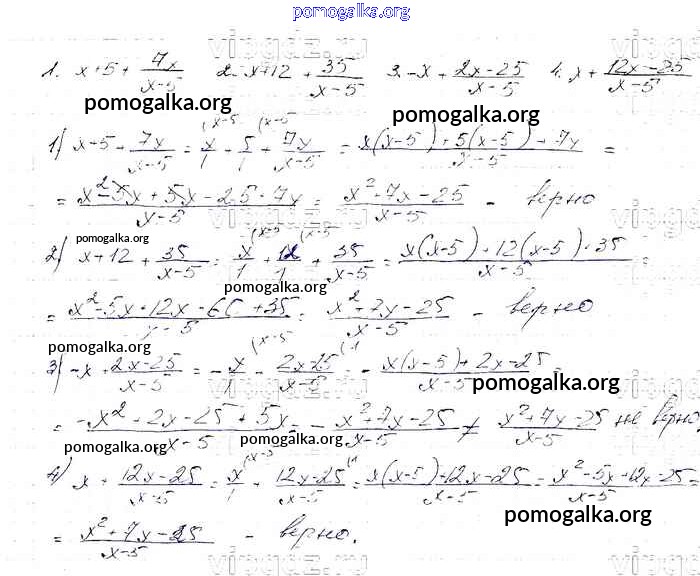 pomogalka.org
1. x+5+ 7x/(x-5) 2. x+12+ 35/(x-5) 3. -x + (2x-25)/(x-5) 4. x+ (12x-25)/(x-5)
pomogalka.org pomogalka.org
1) x+5+ 7x/(x-5) = x/1 (x-5 + 5/1 (x-5 + 7x/(x-5) = (x(x-5)+5(x-5)+7x)/(x-5) =
= (x²-5x+5x-25+7x)/(x-5) = (x²+7x-25)/(x-5) - верно
pomogalka.org
2) x+12+ 35/(x-5) = x/1 (x-5 + 12/1 (x-5 + 35/(x-5) = (x(x-5)+12(x-5)+35)/(x-5) =
pomogalka.org
= (x²-5x+12x-60+35)/(x-5) = (x²+7x-25)/(x-5) - верно
pomogalka.org
3) -x + (2x-25)/(x-5) = - x/1 (x-5 - (2x-25)/(x-5) (1 = - (x(x-5)+2x-25)/(x-5) =
pomogalka.org
= (-x²+2x-25+5x)/(x-5) = - (x²+7x-25)/(x-5) ≠ (x²+7x-25)/(x-5) не верно
pomogalka.org pomogalka.org
4) x + (12x-25)/(x-5) = x/1 (x-5 + (12x-25)/(x-5) (1 = (x(x-5)+12x-25)/(x-5) = (x²-5x+12x-25)/(x-5) =
pomogalka.org
= (x²+7x-25)/(x-5) - верно.